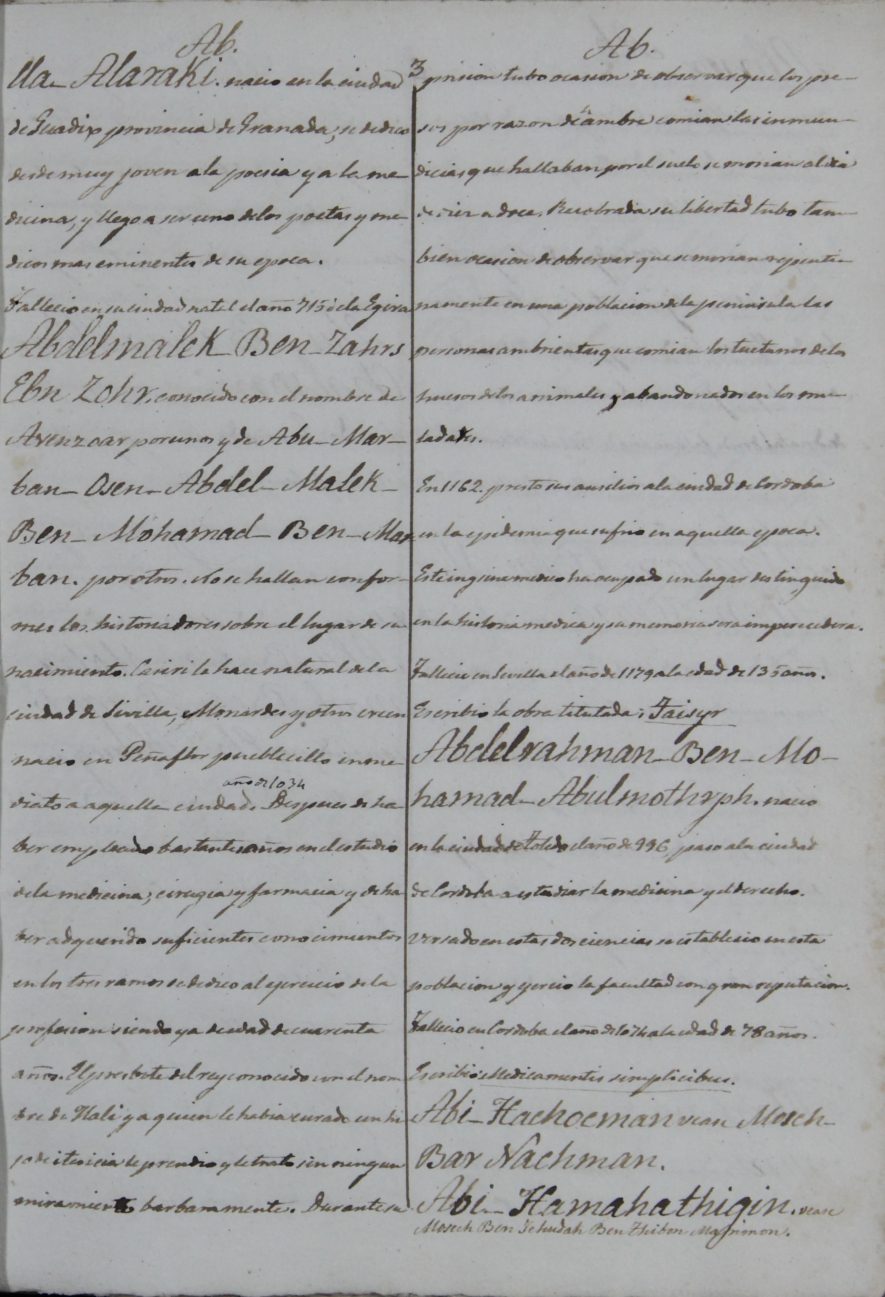 Ab.
lla- Alaraki. nacio en la ciudad
de Guadix provincia de Granada; se dedico
desde muy joven a la poesia y a la me-
dicina, y llego a ser uno de los poetas y me-
dicos mas eminentes de su epoca.
Fallecio en su ciudad natal el año 715 de la Egira
Abdelmalek- Ben- Zahrs
Ebn Zohr, conocido con el nombre de
Avenzoar por unos y de Abu- Mar-
ban- Osen- Abdel- Malek-
Ben- Mohamad- Ben- Mar
ban. por otros. No se hallan confor-
mes los historiadores sobre el lugar de su
nacimiento. Casiri le hace natural de la
ciudad de Sivilla, Monardes y otros creen
nacio en Peñaflor pueblecillo inme
año de 1034
diato a aquella ciudad. Despues de ha-
ber empleado bastantes años en el estudio
de la medicina, cirugia y farmacia y de ha
ber adquerido suficientes conocimientos
en los tres ramos se dedico al ejercicio de la
profesion siendo ya de edad de cuarenta
años. El del rey conocido con el nom-
bre de Hali y a quien le habia curado un hi
jo de itericia le prendio y le trato sin ningun
miramiento barbaramente. Durante su
3
Ab.
prision tubo ocasion de observar que los pre-
sos por razon de ambre comian las inmun-
dicias que hallaban por el suelo se morian al dia
de diez a doce. Recobrada su libertad tubo tam-
bien ocasion de observar que se morian repenti-
namente en una poblacion de la peninsula las
personas ambrientas que comian los tuetanos de los
huesos de los animales y abandonados en los mu-
ladares.
En 1162. presto sus ausilios a la ciudad de Cordoba
en la epidemia que sufrio en aquella epoca.
Este insigne medico ha ocupado un lugar distinguido
en la historia medica y su memoria sera imperecedera.
Fallecio en Sevilla el año de 1179 a la edad de 135 años.
Escribio la obra titulada: Taisyr
Abdelrahman- Ben- Mo-
hamad- Abulmothryph. nacio
en la ciudad de Toledo el año de 996 paso a la ciudad
de Cordoba a estudiar la medicina y el derecho.
Versado en estas dos ciencias se establecio en esta
poblacion y ejercio la facultad con gran reputacion.
Fallecio en Cordoba el año de 1074 a la edad de 78 años.
Escribio: Medicamentis simplicibus.
Abi- Hachoeman vease Mosch-
Bar Nachman.
Abi- Hamahathigin. vease
Mosech Ben Jehudah Ben Thibon Marimon.